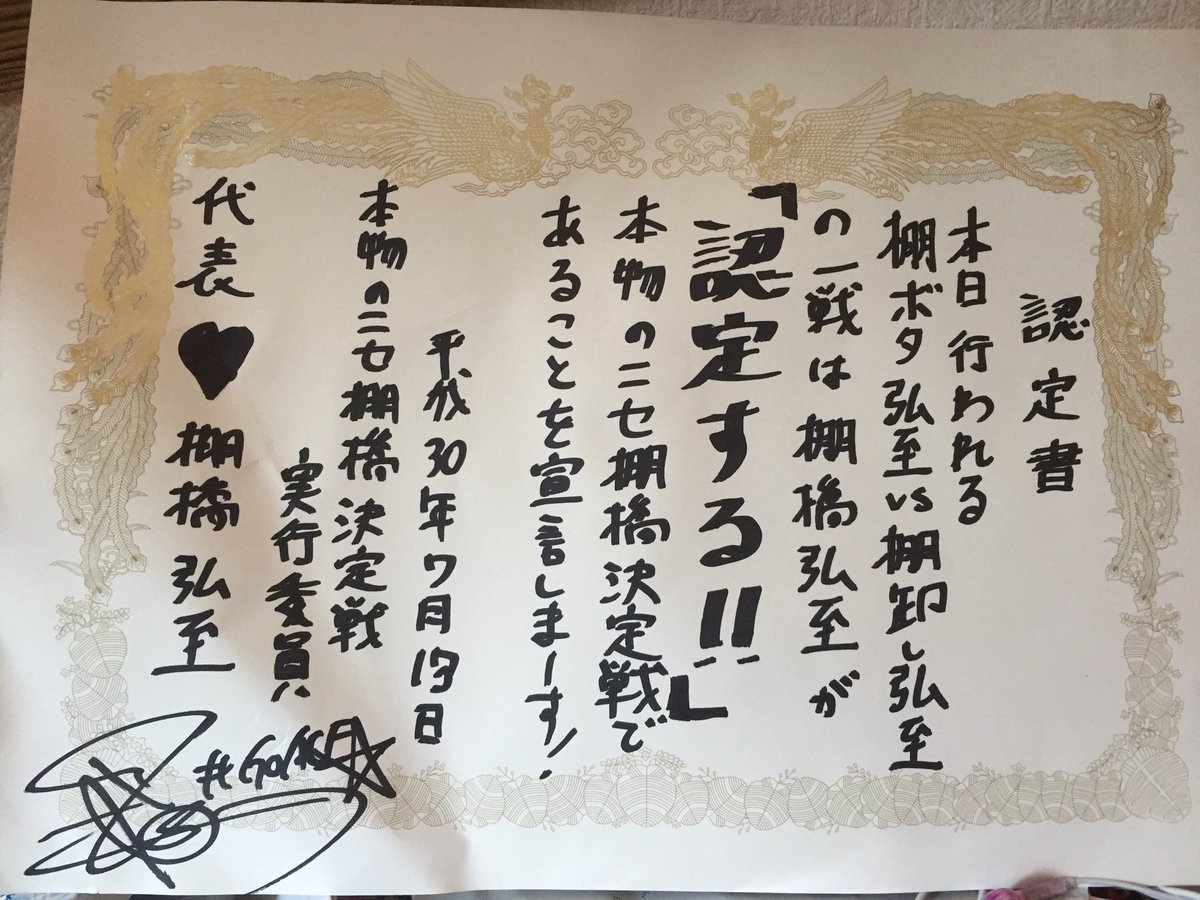 認定書
本日行われる
棚ボタ弘至vs棚卸し弘至
の一戦は棚橋弘至が
「認定する!!」
本物のニセ棚橋決定戦で
あることを宣言しまーす!
平成30年7月13日
本物のニセ棚橋決定戦
実行委員
代表♥棚橋弘至